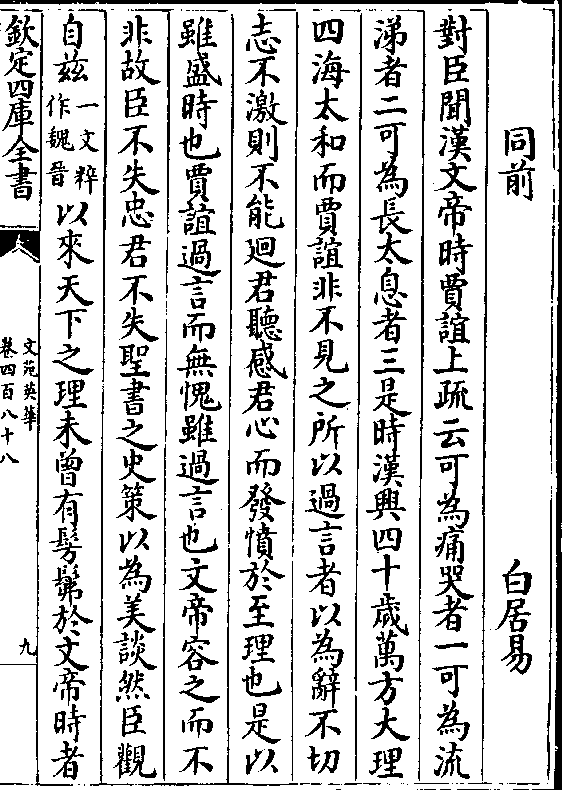 同前　白居易
對臣聞漢文帝時賈誼上疏云可為痛哭者一可為流
涕者二可為長太息者三是時漢興四十歲萬方大理
四海太和而賈誼非不見之所以過言者以為辭不切
志不激則不能廻君聽感君心而發憤於至理也是以
雖盛時也賈誼過言而無愧雖過言也文帝容之而不
非故臣不失忠君不失聖書之史策以為美談然臣觀
自茲一文粹作魏晉以來天下之理未曾有髣髴於文帝時者
欽定四庫全書
文苑英華
卷四百八十八
九